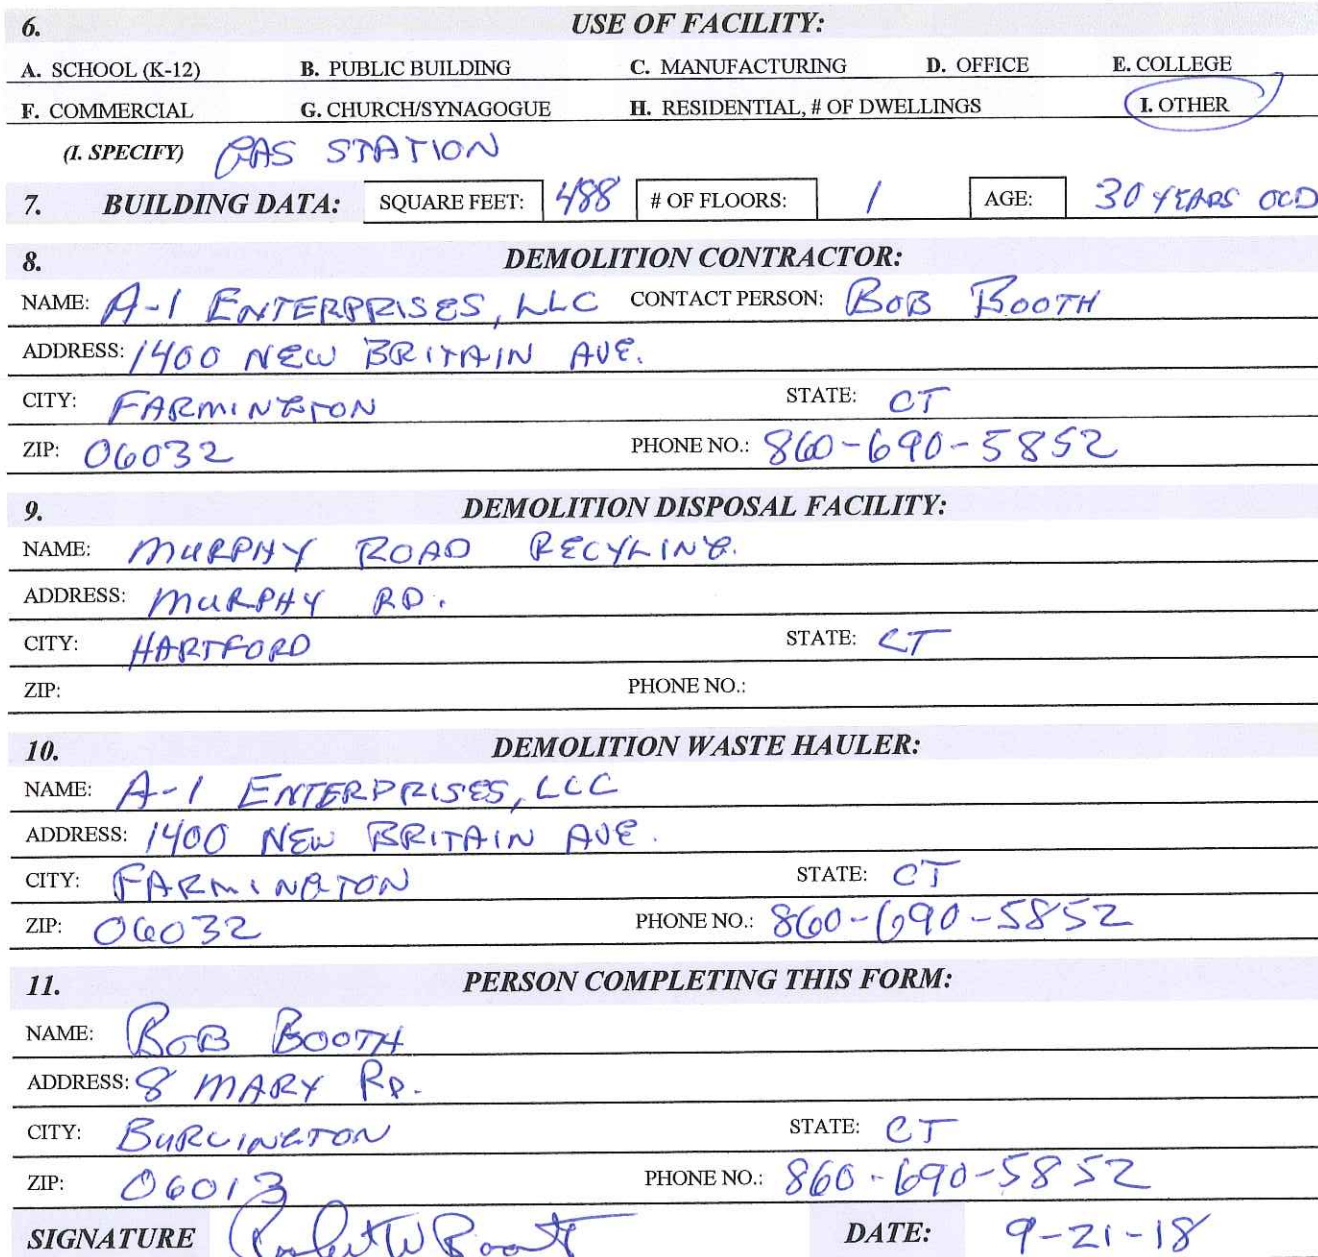 6. USE OF FACILITY:
A. SCHOOL (K-12) B. PUBLIC BUILDING C. MANUFACTURING D. OFFICE E. COLLEGE
F. COMMERCIAL G. CHURCH/SYNAGOGUE H. RESIDENTIAL, # OF DWELLINGS I. OTHER
(I. SPECIFY) GAS STATION
7. BUILDING DATA: SQUARE FEET: 488 # OF FLOORS: 1 AGE: 30 YEARS OLD
8. DEMOLITION CONTRACTOR:
NAME: A-1 ENTERPRISES, LLC CONTACT PERSON: BOB BOOTH
ADDRESS: 1400 NEW BRITAIN AVE.
CITY: FARMINGTON STATE: CT
ZIP: 06032 PHONE NO.: 860-690-5852
9. DEMOLITION DISPOSAL FACILITY:
NAME: MURPHY ROAD RECYLING.
ADDRESS: MURPHY RD.
CITY: HARTFORD STATE: CT
ZIP: PHONE NO.:
10. DEMOLITION WASTE HAULER:
NAME: A-1 ENTERPRISES, LLC
ADDRESS: 1400 NEW BRITAIN AVE.
CITY: FARMINGTON STATE: CT
ZIP: 06032 PHONE NO.: 860-690-5852
11. PERSON COMPLETING THIS FORM:
NAME: BOB BOOTH
ADDRESS: 8 MARY RD.
CITY: BURLINGTON STATE: CT
ZIP: 06013 PHONE NO.: 860-690-5852
SIGNATURE Robert W Booth DATE: 9-21-18